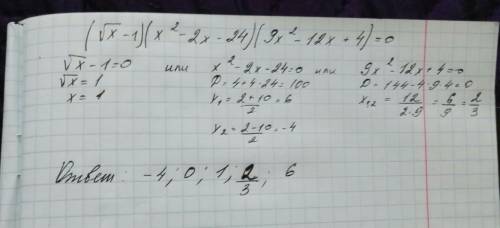 (√x - 1)(x² - 2x - 24)(9x² - 12x + 4) = 0
√x - 1 = 0 или x² - 2x - 24 = 0 или 9x² - 12x + 4 = 0
√x = 1 D = 4 + 4·24 = 100 D = 144 - 4·9·4 = 0
x = 1 x₁ = (2+10)/2 = 6 x₁,₂ = 12/(2·9) = 6/9 = 2/3
x₂ = (2-10)/2 = -4
Ответ: -4; 0; 1; 2/3; 6